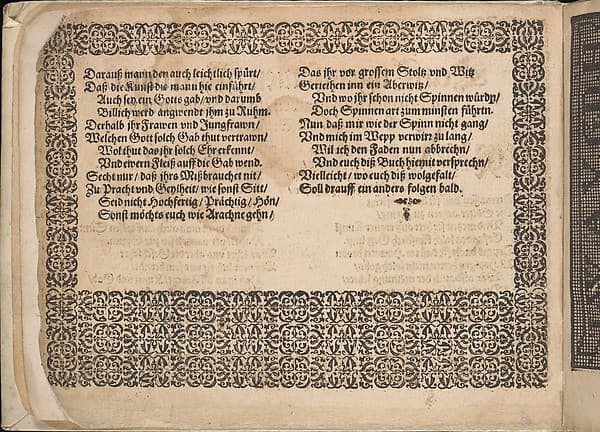 Darauß mann den auch leichtlich spürt/
Daß die Kunst die mann hie einführt/
Auch sey ein Gottsgab/vnd darumb
Billich werd angwendt jhm zu Ruhm.
Derhalb jhr Frawen vnd Jungfrawn/
Welchen Gott solch Gab thut vertrawn/
Wolthut das jhr solch Ehr erkennt/
Vnd ewern Fleiß auff die Gab wend.
Secht nur/daß jhrs Mißbrauchet nit/
Zu Pracht vnd Geylheit/wie sonst Sitt/
Seid nicht Hochfertig/Prächtig/Hön/
Sonst möchts euch wie Arachne gehn/
Das jhr vor grossem Stoltz vnd Witz
Geriethen inn ein Aberwitz/
Vnd wo jhr schon nicht Spinnen würdn/
Doch Spinnen art zum minsten führtn.
Nun daß mir wie der Spinn nicht gang/
Vnd mich im Wepp verwirr zu lang/
Wil ich den Faden nun abbrechn/
Vnd euch diß Buch hiemit versprechn/
Vielleicht/wo euch diß wolgefalt/
Soll drauff ein anders folgen bald.